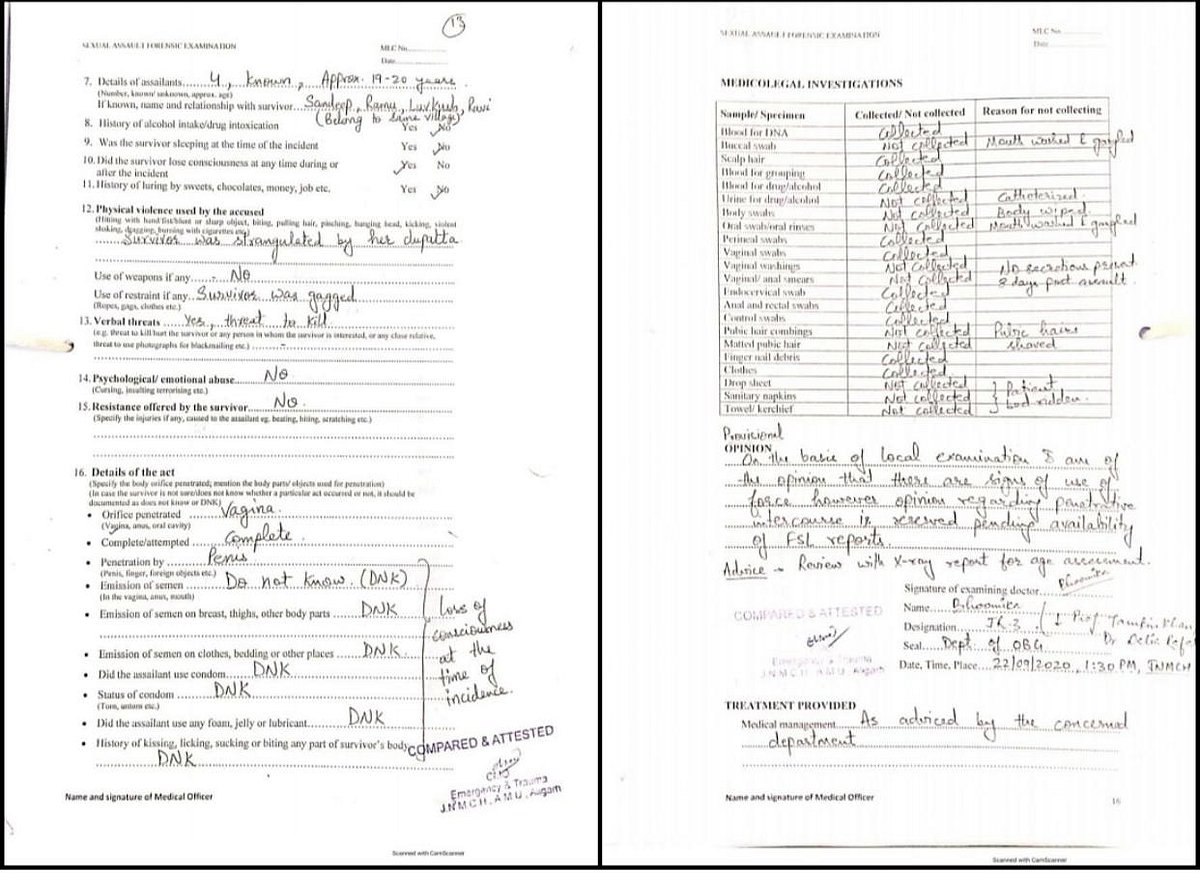 13
SEXUAL ASSAULT FORENSIC EXAMINATION
MLC No.
Date
7. Details of assailants 4, known, Approx. 19-20 years.
(Number, known/ unknown, approx. age)
If known, name and relationship with survivor Sandeep, Ramu, Luvkush, Ravi
(Belong to same village)
8. History of alcohol intake/drug intoxication Yes No
9. Was the survivor sleeping at the time of the incident Yes No
10. Did the survivor lose consciousness at any time during or Yes No
after the incident
11. History of luring by sweets, chocolates, money, job etc. Yes No
12. Physical violence used by the accused
(Hitting with hand/fist/blunt or sharp object, biting, pulling hair, pinching, banging head, kicking, violent
shaking, dragging, burning with cigarettes etc)
Survivor was strangulated by her dupatta
Use of weapons if any No
Use of restraint if any Survivor was gagged
(Ropes, gags, clothes etc.)
13. Verbal threats Yes, threat to kill
(e.g. threat to kill/hurt the survivor or any person in whom the survivor is interested, or any close relative,
threat to use photographs for blackmailing etc.)
14. Psychological/ emotional abuse No
(Cursing, insulting terrorising etc.)
15. Resistance offered by the survivor No.
(Specify the injuries if any, caused to the assailant eg. beating, biting, scratching etc.)
16. Details of the act
(Specify the body orifice penetrated; mention the body parts/ objects used for penetration)
(In case the survivor is not sure/does not know whether a particular act occurred or not, it should be
documented as does not know or DNK)
• Orifice penetrated Vagina.
(Vagina, anus, oral cavity)
• Complete/attempted Complete.
• Penetration by Penis
(Penis, finger, foreign objects etc.)
• Emission of semen Do not know. (DNK)
(In the vagina, anus, mouth)
• Emission of semen on breast, thighs, other body parts DNK
• Emission of semen on clothes, bedding or other places DNK.
• Did the assailant use condom DNK
• Status of condom DNK
(Torn, intact etc.)
• Did the assailant use any foam, jelly or lubricant DNK
• History of kissing, licking, sucking or biting any part of survivor's body
DNK
loss of
consciousness
at the
time of
incidence.
COMPARED & ATTESTED
Emergency & Trauma
J.N.M.C.H., A.M.U., Aligarh
Name and signature of Medical Officer
Scanned with CamScanner
SEXUAL ASSAULT FORENSIC EXAMINATION
MLC No
Date
MEDICOLEGAL INVESTIGATIONS
Sample/ Specimen Collected/ Not collected Reason for not collecting
Blood for DNA Collected
Buccal swab Not collected Mouth washed & gargled
Scalp hair Collected
Blood for grouping Collected
Blood for drug/alcohol Collected
Urine for drug/alcohol Not collected Catheterized.
Body swabs Not collected Body wiped.
Oral swab/oral rinses Not collected Mouth washed & gargled
Perineal swabs Collected
Vaginal swabs Collected
Vaginal washings Not collected No secretions present.
Vaginal/ anal smears Not collected 8 days post assault.
Endocervical swab Collected
Anal and rectal swabs Collected
Control swabs Collected
Pubic hair combings Not collected Pubic hairs
Matted pubic hair Not collected shaved
Finger nail debris Collected
Clothes Collected
Drop sheet Not collected Patient
Sanitary napkins Not collected bed ridden.
Towel/ kerchief Not collected
Provisional
OPINION
On the basis of local examination I am of
the opinion that there are signs of use of
force however opinion regarding penetrative
intercourse is reserved pending availability
of FSL reports.
Advice - Review with X-ray report for age assessment.
Signature of examining doctor Bhoomika
Name Bhoomika
Designation JR-3
Seal Dept. of OBG
Date, Time, Place 22/09/2020, 1:30 PM, JNMCH
COMPARED & ATTESTED
Emergency & Trauma
J.N.M.C.H., A.M.U., Aligarh
TREATMENT PROVIDED
Medical management As adviced by the concerned
department
Name and signature of Medical Officer
16
Scanned with CamScanner